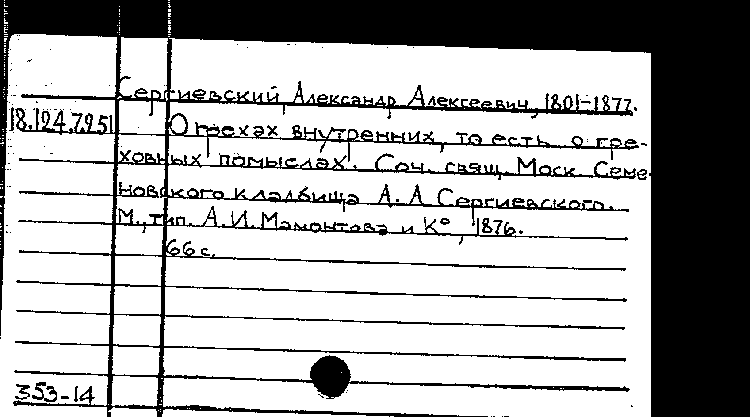 Сергиевский, Александр Алексеевич, 1801-1877.
18.124.7.251 О грехах внутренних, то есть о гре-
ховных помыслах. Соч. свящ. Моск. Семе-
новского кладбища А. А. Сергиевского.
М., тип. А. И. Мамонтова и К°, 1876.
66 с.
353-14